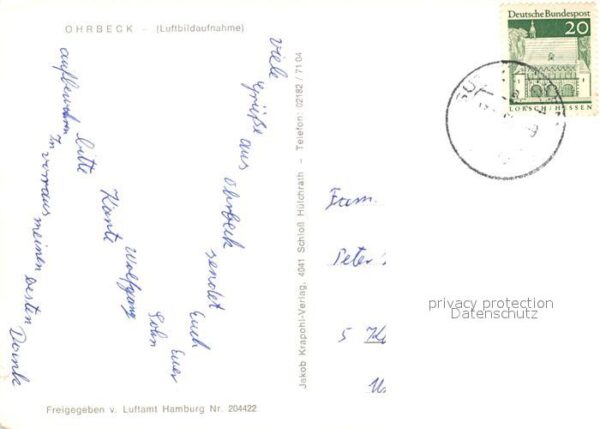 OHRBECK - (Luftbildaufnahme)
Viele
Grüße
aus
Ohrbeck
sendet
Euch
Euer
Sohn
Wolfgang
Karte
bitte
aufbewahren
In vorraus meinen besten
Dank
Freigegeben v. Luftamt Hamburg Nr. 204422
Jakob Krapohl-Verlag, 4041 Schloß Hülchrath - Telefon: 02182 / 71 04
Deutsche Bundespost
20
LORSCH/HESSEN
Fam.
Peter
5
privacy protection
Datenschutz